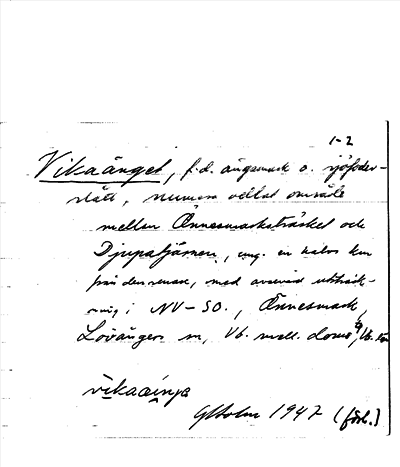 1-2
Vikaänget, f.d. ängsmark o. sjöfoder-
slått, numera odlat område
mellan Önnesmarksträsket och
Djupatjärnen, ung. en halv km
från den senare, med avsevärd utsträck-
ning i NV-SO., Önnesmark,
Lövångers sn, Vb. mell. doms
vikaäinja
GHolm 1947 (förk.)